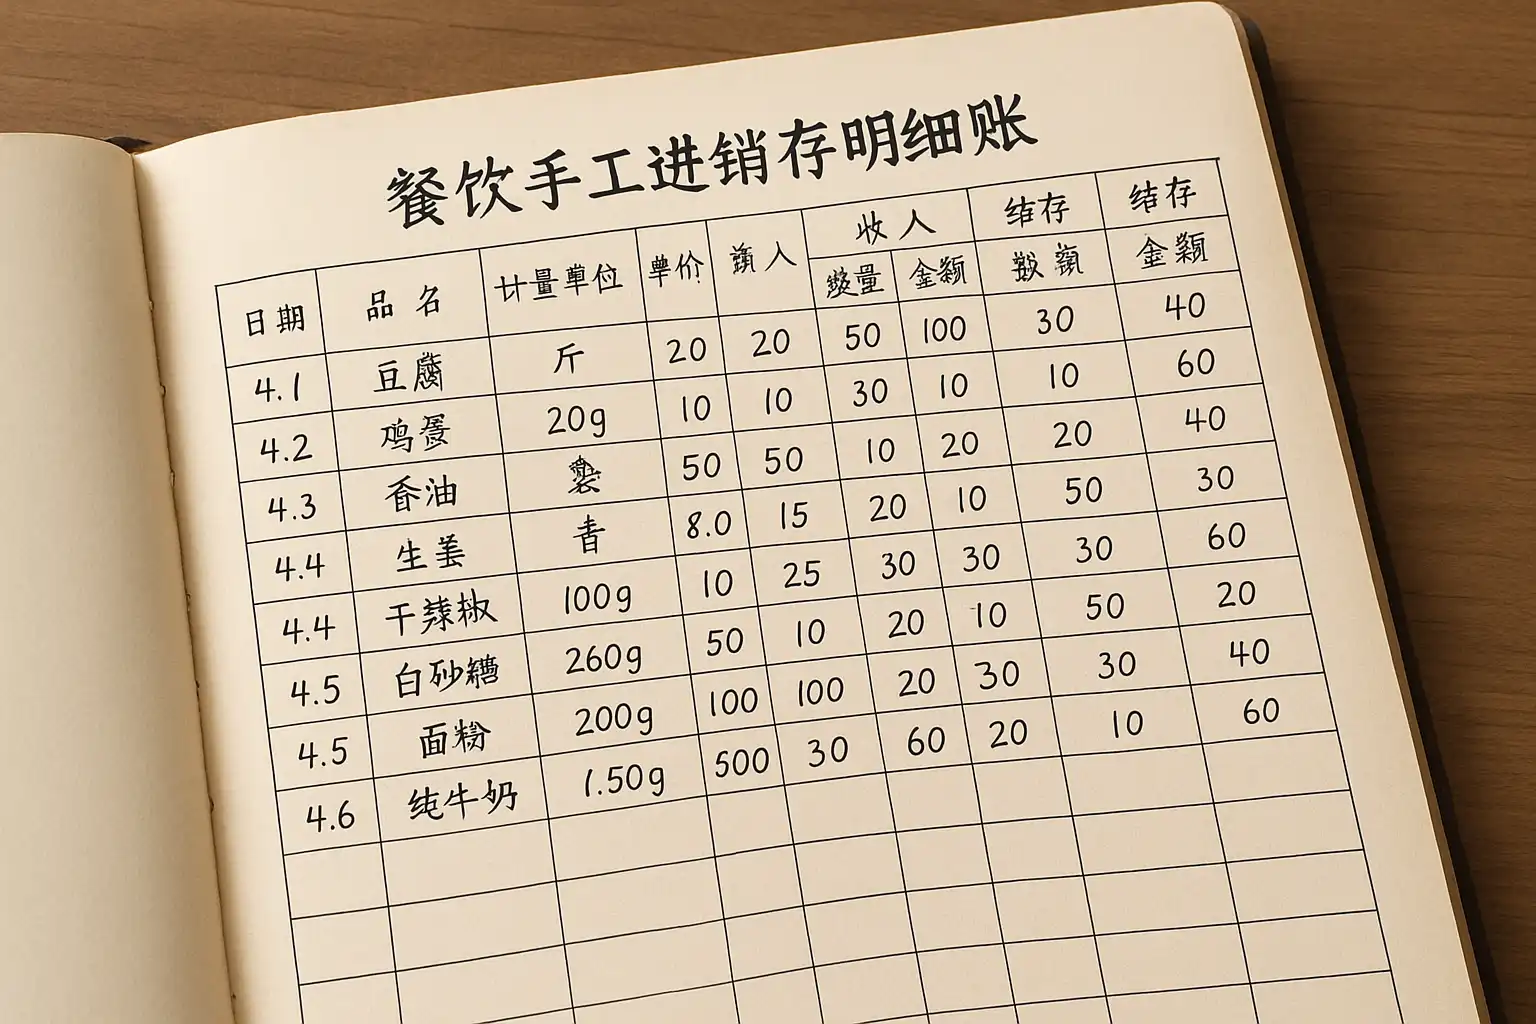 餐饮手工进销存明细账
日期 品名 计量单位 单价 入 收人 结存 结存
量 金额 金额
4.1 豆腐 斤 20 20 50 100 30 40
4.2 鸡蛋 20g 10 10 30 10 10 60
4.3 香油 50 50 10 20 20 40
4.4 生姜 8.0 15 20 10 50 30
4.4 干辣椒 100g 10 25 30 30 30 60
4.5 白砂糖 260g 50 10 20 10 50 20
4.5 面粉 200g 100 100 20 30 30 40
4.6 纯牛奶 1.50g 500 30 60 20 10 60